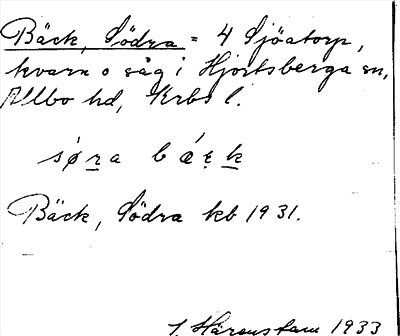 Bäck, Södra = 4 Sjöatorp,
kvarn o såg i Hjortsberga sn,
Allbo hd, Krbs l.
Bäck, Södra kb 1931.
Härenstam 1933